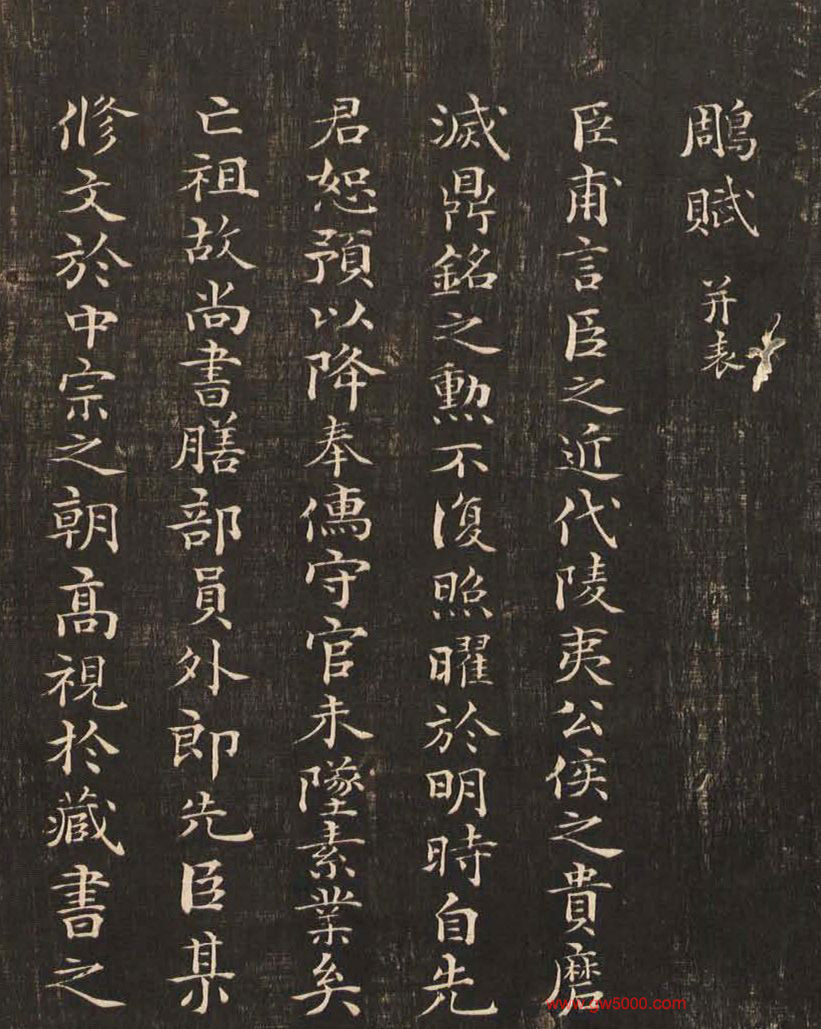 鵰賦 并表
臣甫言臣之近代陵夷公侯之貴磨
滅鼎銘之勲不復照曜於明時自先
君恕預以降奉儒守官未墜素業矣
亡祖故尚書膳部員外郎先臣某
修文於中宗之朝高視於藏書之
www.gw5000.com